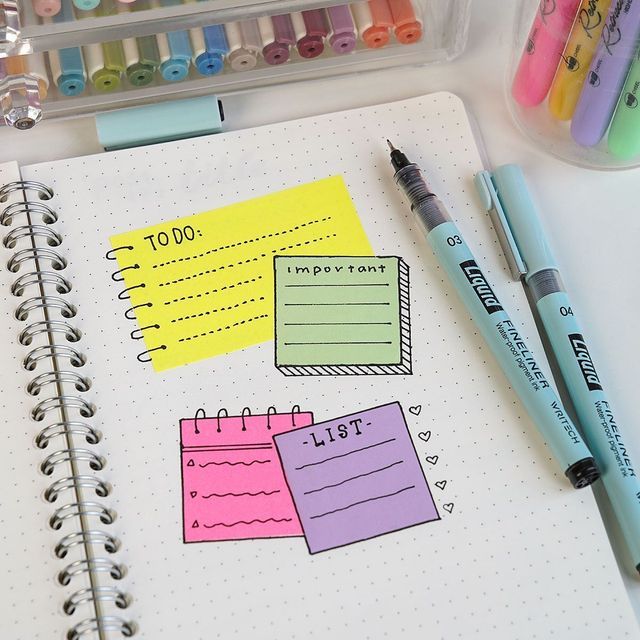 TO DO:
Important
-LIST-
03
LIQUID
FINELINER
Waterproof pigment ink
WRITECH
04
LIQUID
FINELINER
Waterproof pigment ink